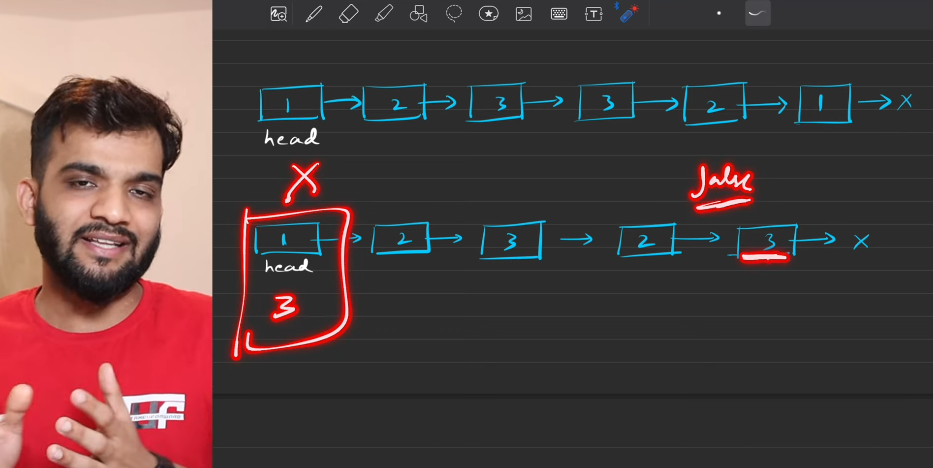 1 → 2 → 3 → 3 → 2 → 1 → x
head
X
false
1 → 2 → 3 → 2 → 3 → x
head
3